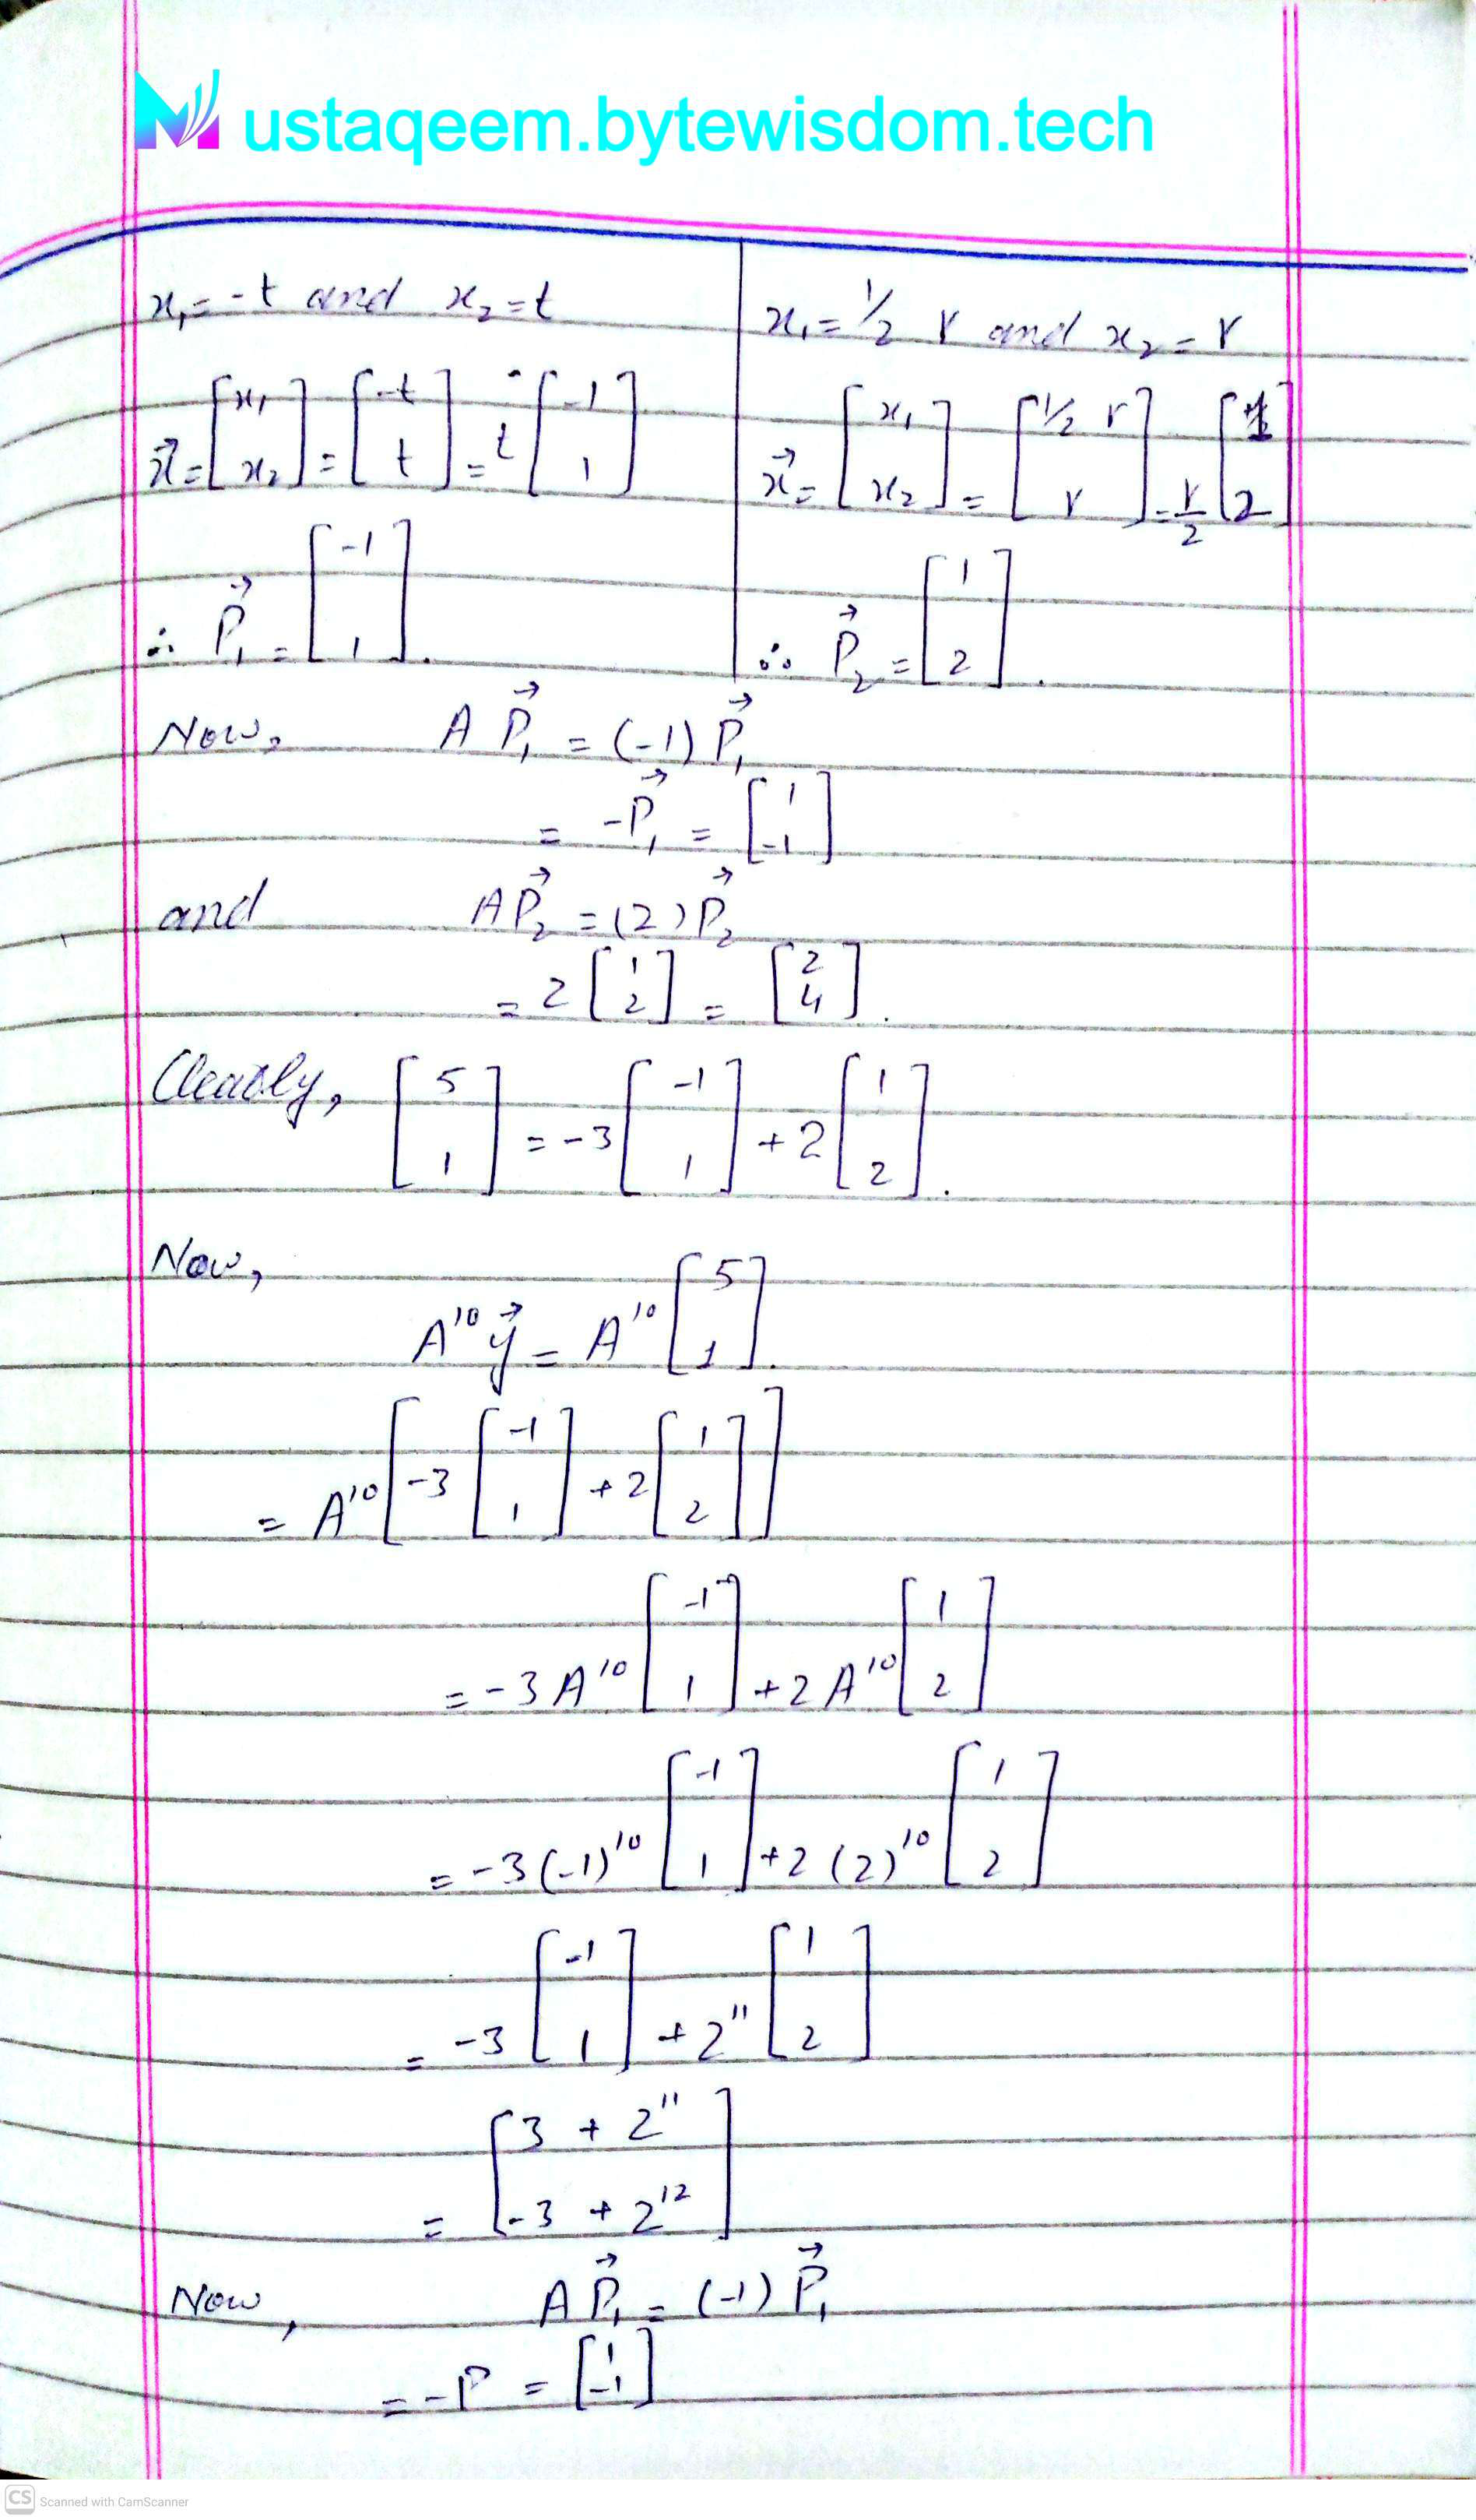 Mustaqeem.bytewisdom.tech
x₁ = -t and x₂ = t
x⃗ = [x₁; x₂] = [-t; t] = t[-1; 1]
∴ P⃗₁ = [-1; 1].
x₁ = 1/2 r and x₂ = r
x⃗ = [x₁; x₂] = [1/2 r; r] = r/2 [1; 2]
∴ P⃗₂ = [1; 2].
Now, A P⃗₁ = (-1) P⃗₁
= -P⃗₁ = [1; -1]
and A P⃗₂ = (2) P⃗₂
= 2 [1; 2] = [2; 4].
Clearly, [5; 1] = -3 [-1; 1] + 2 [1; 2].
Now,
A¹⁰ y⃗ = A¹⁰ [5; 1].
= A¹⁰ [-3 [-1; 1] + 2 [1; 2]]
= -3 A¹⁰ [-1; 1] + 2 A¹⁰ [1; 2]
= -3 (-1)¹⁰ [-1; 1] + 2 (2)¹⁰ [1; 2]
= -3 [-1; 1] + 2¹¹ [1; 2]
= [3 + 2¹¹; -3 + 2¹²]
Now, A P⃗₁ = (-1) P⃗₁
= -P = [1; -1]
CS Scanned with CamScanner